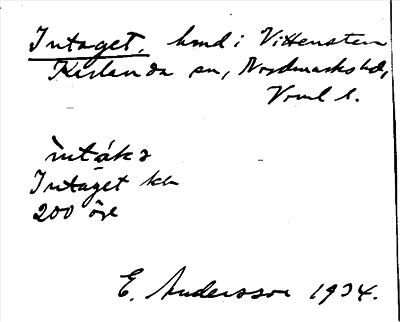 Intaget, hmd i Vittensten
Karlanda sn, Nordmarks hd,
Vrml l.
ìntáka
Intaget kb
200 öre
E. Andersson 1934.